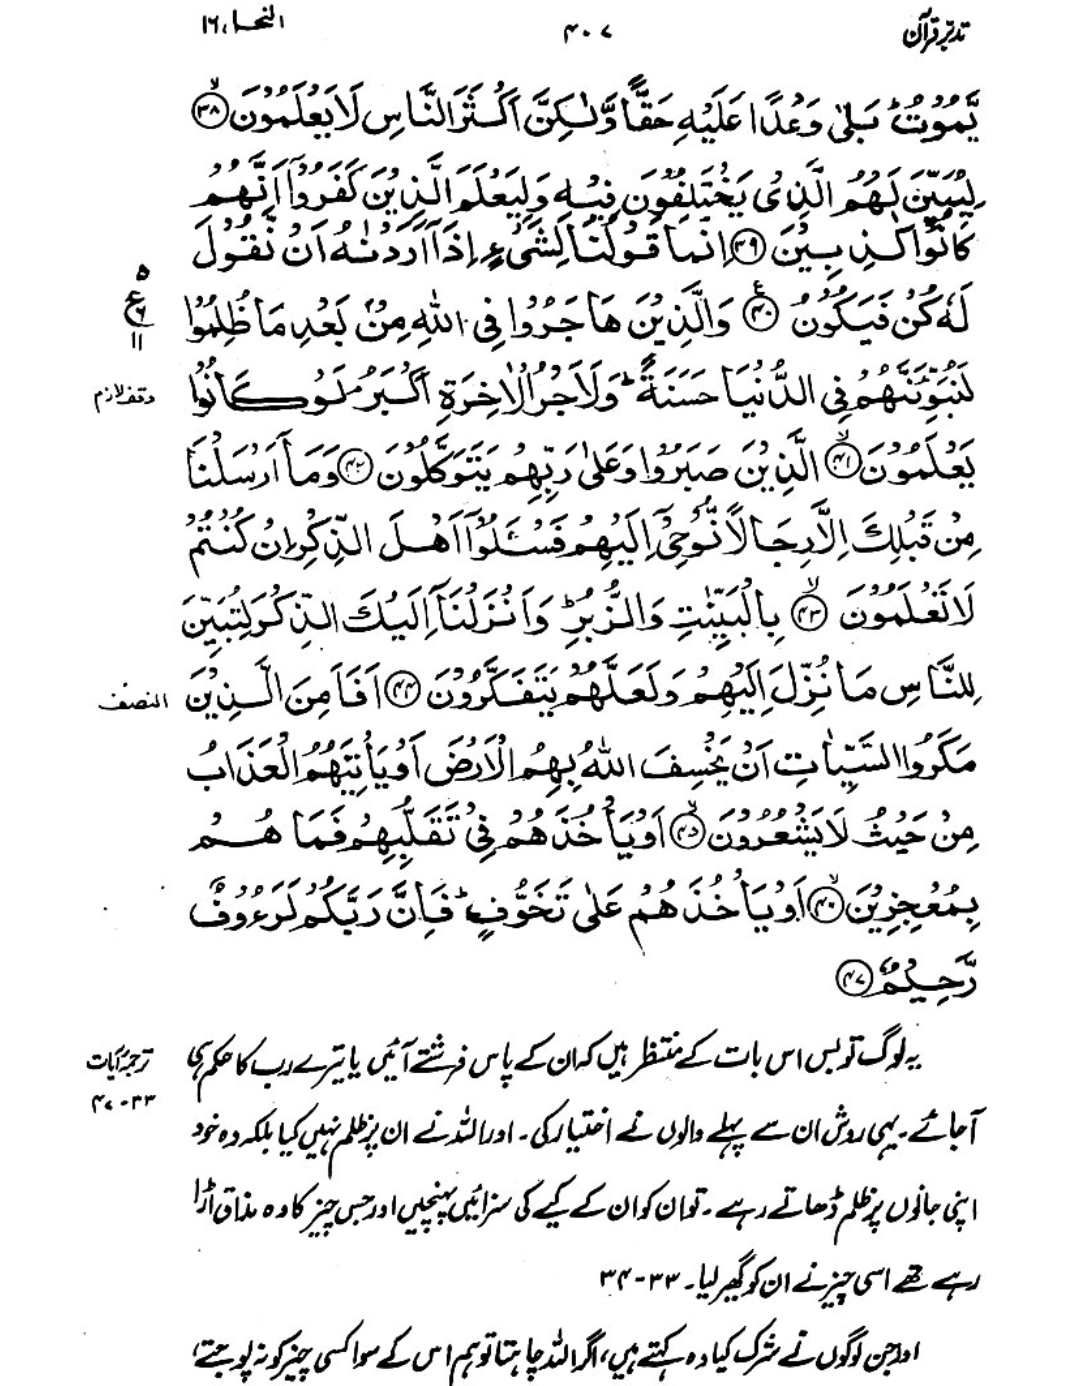 تدبر قرآن ۴۰۷ النحل ۱۶
يَّمُوْتُ ؕ بَلٰى وَعْدًا عَلَيْهِ حَقًّا وَّلٰكِنَّ اَكْثَرَ النَّاسِ لَا يَعْلَمُوْنَ ۙ﴿۳۸﴾
لِيُبَيِّنَ لَهُمُ الَّذِىْ يَخْتَلِفُوْنَ فِيْهِ وَلِيَعْلَمَ الَّذِيْنَ كَفَرُوْۤا اَنَّهُمْ
كَانُوْا كٰذِبِيْنَ ﴿۳۹﴾ اِنَّمَا قَوْلُنَا لِشَىْءٍ اِذَاۤ اَرَدْنٰهُ اَنْ نَّقُوْلَ
لَهٗ كُنْ فَيَكُوْنُ ﴿۴۰﴾ۧ وَالَّذِيْنَ هَاجَرُوْا فِى اللّٰهِ مِنْۢ بَعْدِ مَا ظُلِمُوْا
۵
ع
۶
۱۱
لَنُبَوِّئَنَّهُمْ فِى الدُّنْيَا حَسَنَةً ؕ وَلَاَجْرُ الْاٰخِرَةِ اَكْبَرُ ۘ لَوْ كَانُوْا
وقف لازم
يَعْلَمُوْنَ ۙ﴿۴۱﴾ الَّذِيْنَ صَبَرُوْا وَعَلٰى رَبِّهِمْ يَتَوَكَّلُوْنَ ﴿۴۲﴾ وَمَاۤ اَرْسَلْنَا
مِنْ قَبْلِكَ اِلَّا رِجَالًا نُّوْحِىْۤ اِلَيْهِمْ فَسْـَٔلُوْۤا اَهْلَ الذِّكْرِ اِنْ كُنْتُمْ
لَا تَعْلَمُوْنَ ۙ﴿۴۳﴾ بِالْبَيِّنٰتِ وَالزُّبُرِ ؕ وَاَنْزَلْنَاۤ اِلَيْكَ الذِّكْرَ لِتُبَيِّنَ
لِلنَّاسِ مَا نُزِّلَ اِلَيْهِمْ وَلَعَلَّهُمْ يَتَفَكَّرُوْنَ ﴿۴۴﴾ اَفَاَمِنَ الَّذِيْنَ
النصف
مَكَرُوا السَّيِّاٰتِ اَنْ يَّخْسِفَ اللّٰهُ بِهِمُ الْاَرْضَ اَوْ يَاْتِيَهُمُ الْعَذَابُ
مِنْ حَيْثُ لَا يَشْعُرُوْنَ ۙ﴿۴۵﴾ اَوْ يَاْخُذَهُمْ فِىْ تَقَلُّبِهِمْ فَمَا هُمْ
بِمُعْجِزِيْنَ ۙ﴿۴۶﴾ اَوْ يَاْخُذَهُمْ عَلٰى تَخَوُّفٍ ؕ فَاِنَّ رَبَّكُمْ لَرَءُوْفٌ
رَّحِيْمٌ ﴿۴۷﴾
ترجمۂ آیات
۳۳-۴۷
یہ لوگ تو بس اس بات کے منتظر ہیں کہ ان کے پاس فرشتے آئیں یا تیرے رب کا حکم ہی
آجائے۔ یہی روش ان سے پہلے والوں نے اختیار کی۔ اور اللہ نے ان پر ظلم نہیں کیا بلکہ وہ خود
اپنی جانوں پر ظلم ڈھاتے رہے۔ تو ان کو ان کے کیے کی سزائیں پہنچیں اور جس چیز کا وہ مذاق اڑا
رہے تھے اسی چیز نے ان کو گھیر لیا۔ ۳۳-۳۴
اور جن لوگوں نے شرک کیا وہ کہتے ہیں، اگر اللہ چاہتا تو ہم اس کے سوا کسی چیز کو نہ پوجتے،